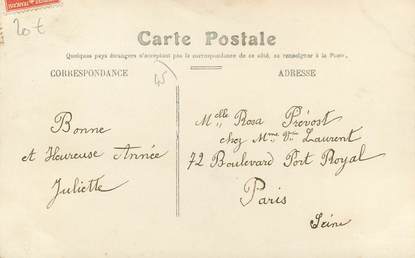 20 t
Carte Postale
Quelques pays étrangers n'acceptant pas la correspondance de ce côté, se renseigner à la Poste.
CORRESPONDANCE
ADRESSE
Bonne
et Heureuse Année
Juliette
Melle Rosa Prévost
chez Mme Vve Laurent
72 Boulevard Port Royal
Paris
Seine